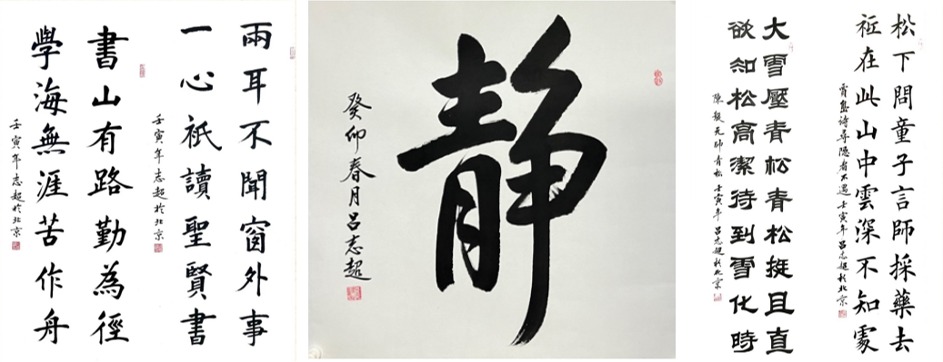 兩耳不聞窗外事
一心祇讀聖賢書
壬寅年志超於北京
書山有路勤為徑
學海無涯苦作舟
壬寅年志超於北京
靜
癸卯春月呂志超
松下問童子言師採藥去
祇在此山中雲深不知處
賈島诗尋隐者不遇 壬寅年呂志超於北京
大雪壓青松青松挺且直
欲知松高潔待到雪化時
陳毅元帥青松 壬寅年呂志超於北京